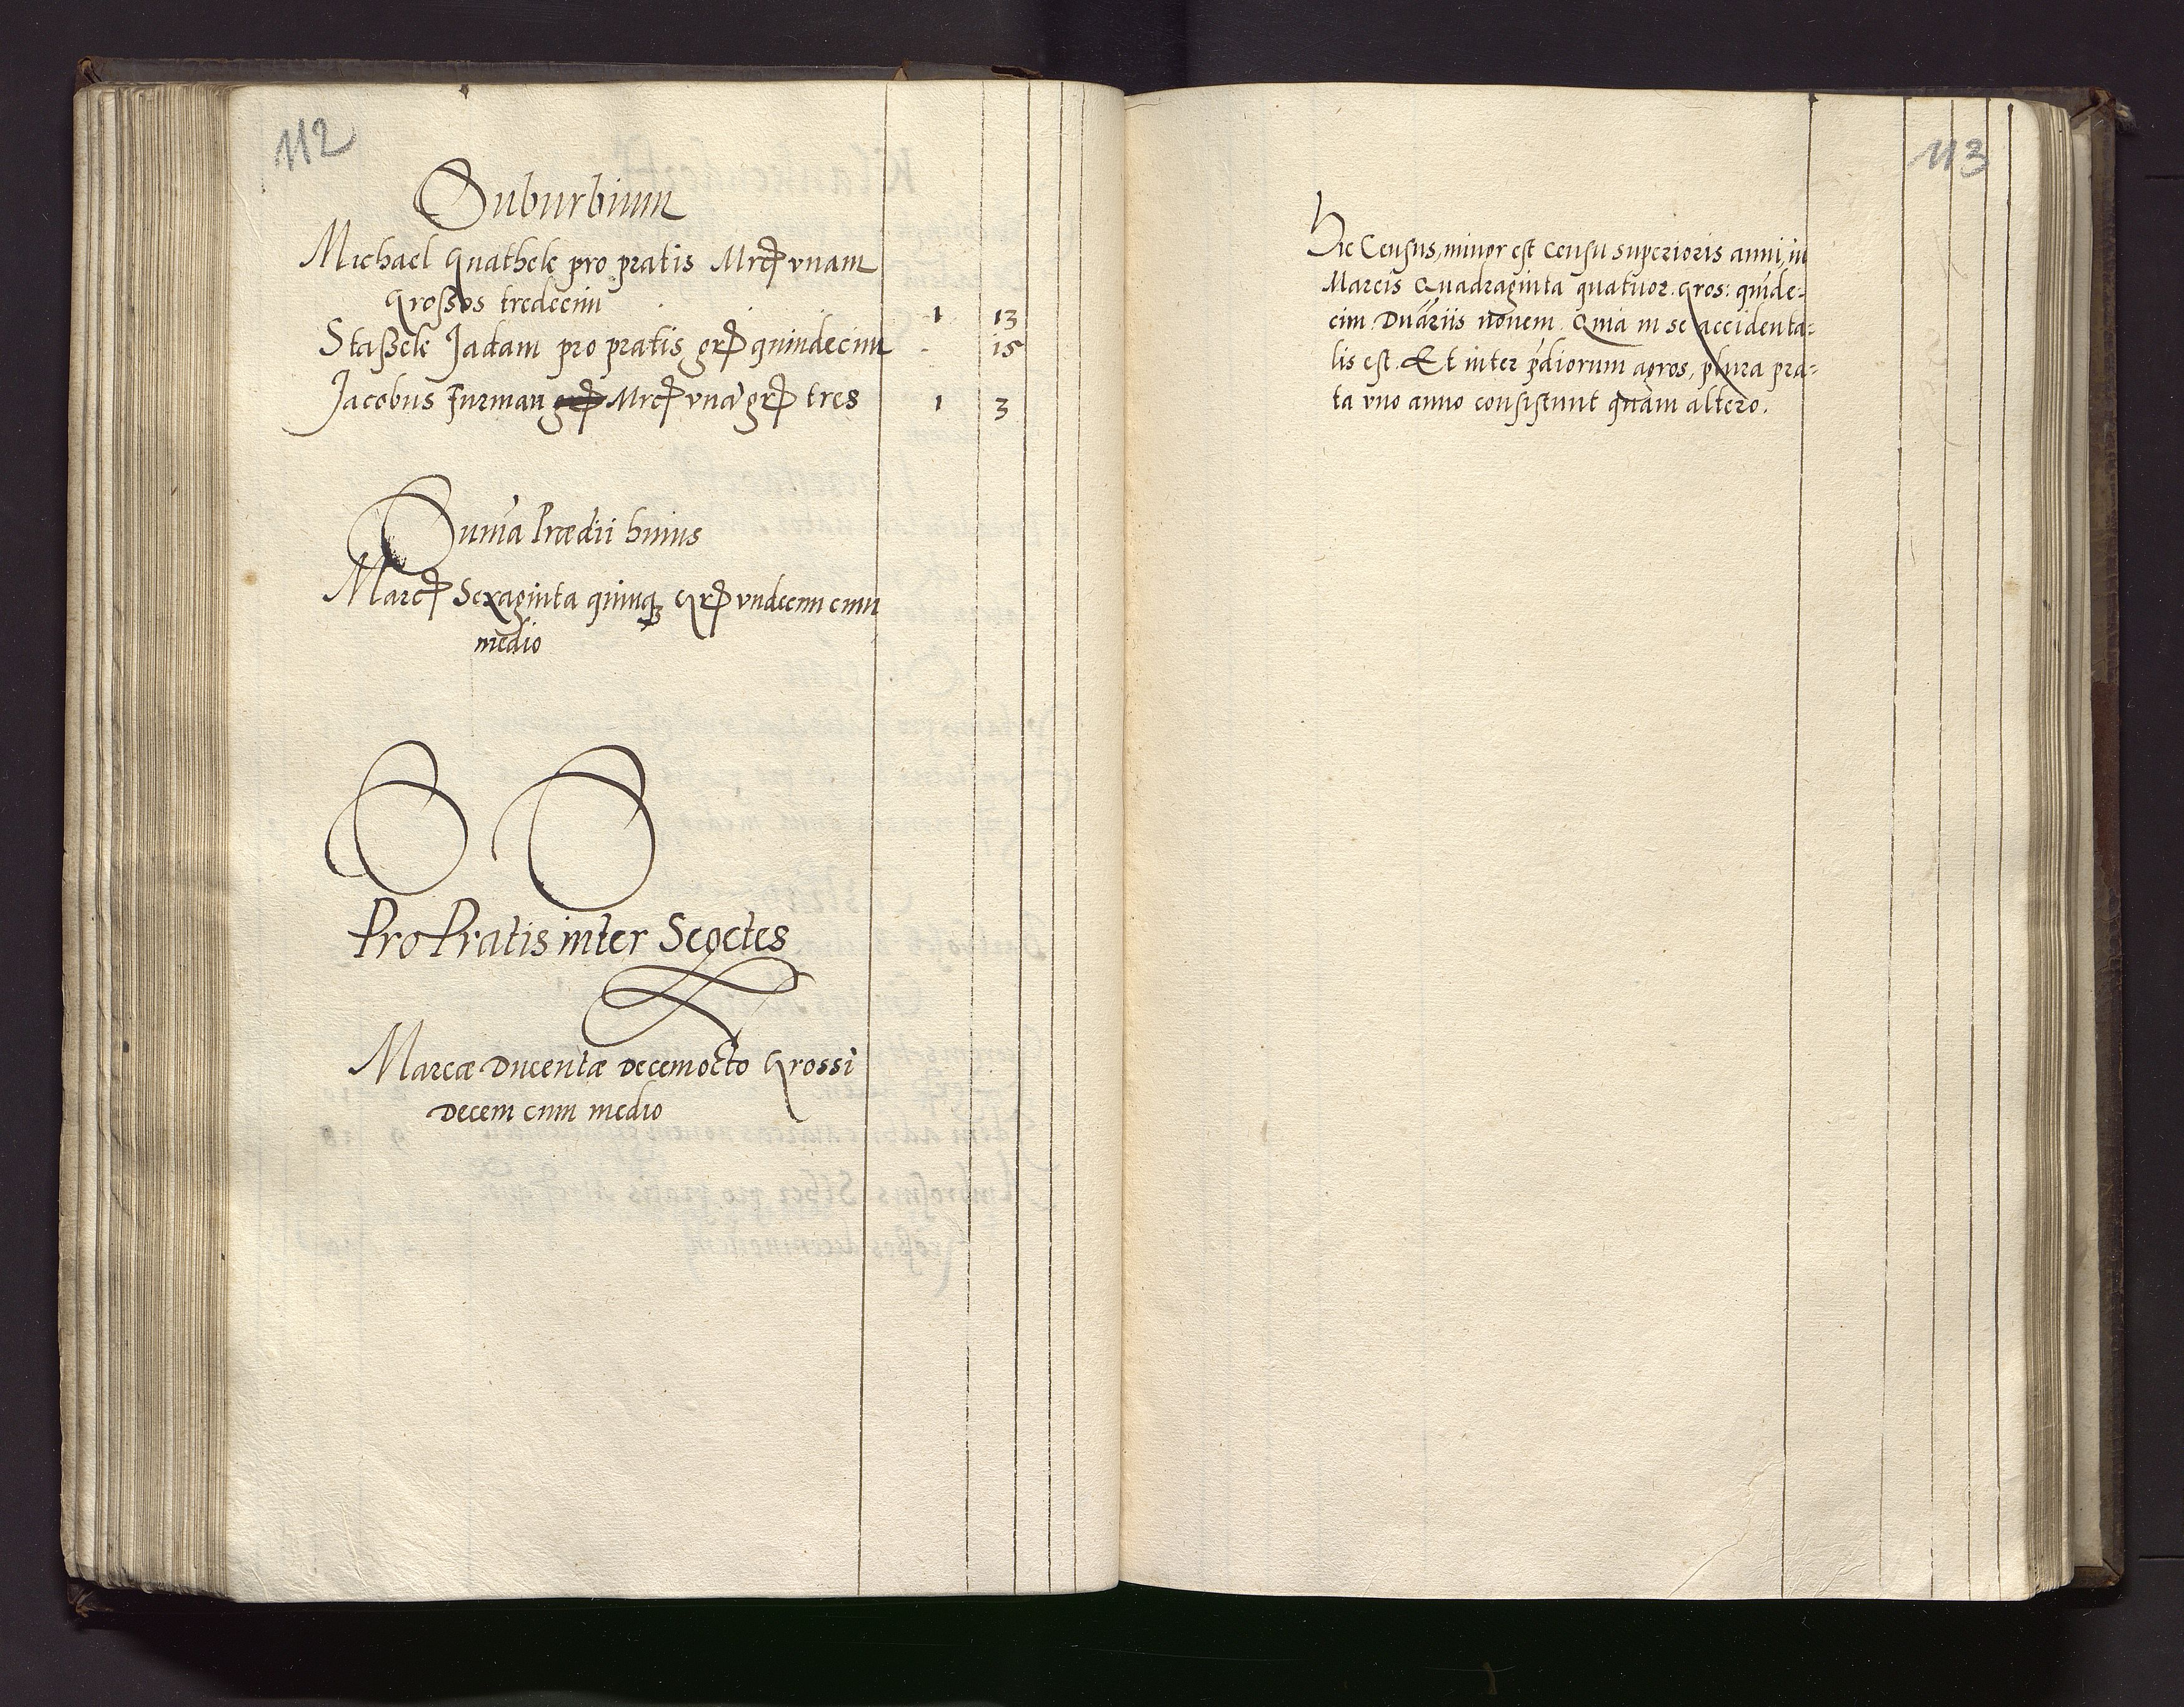 112
Suburbium
Michael Gnathele pro pratis Mrcꝭ vnam
Grossos tredecim 1 13
Staßele Jadam pro pratis grꝭ quindecim - 15
Jacobus Furman Mrcꝭ vnā grꝭ tres 1 3
Sum̄a Prædii huius
Marcꝭ Sexaginta quinqꝫ Grꝭ vndecim cum
medio
Pro Pratis inter Segetes
Marcæ Ducentæ decemocto Grossi
decem cum medio
113
Hic Census, minor est Censu superioris anni, in
Marcis Quadraginta quatuor. Gros: quīde-
cim Dnāriis nouem. Quia in se accidenta-
lis est. Et inter p̄diorum agros, plura pra-
ta vno anno consistunt quàm altero.